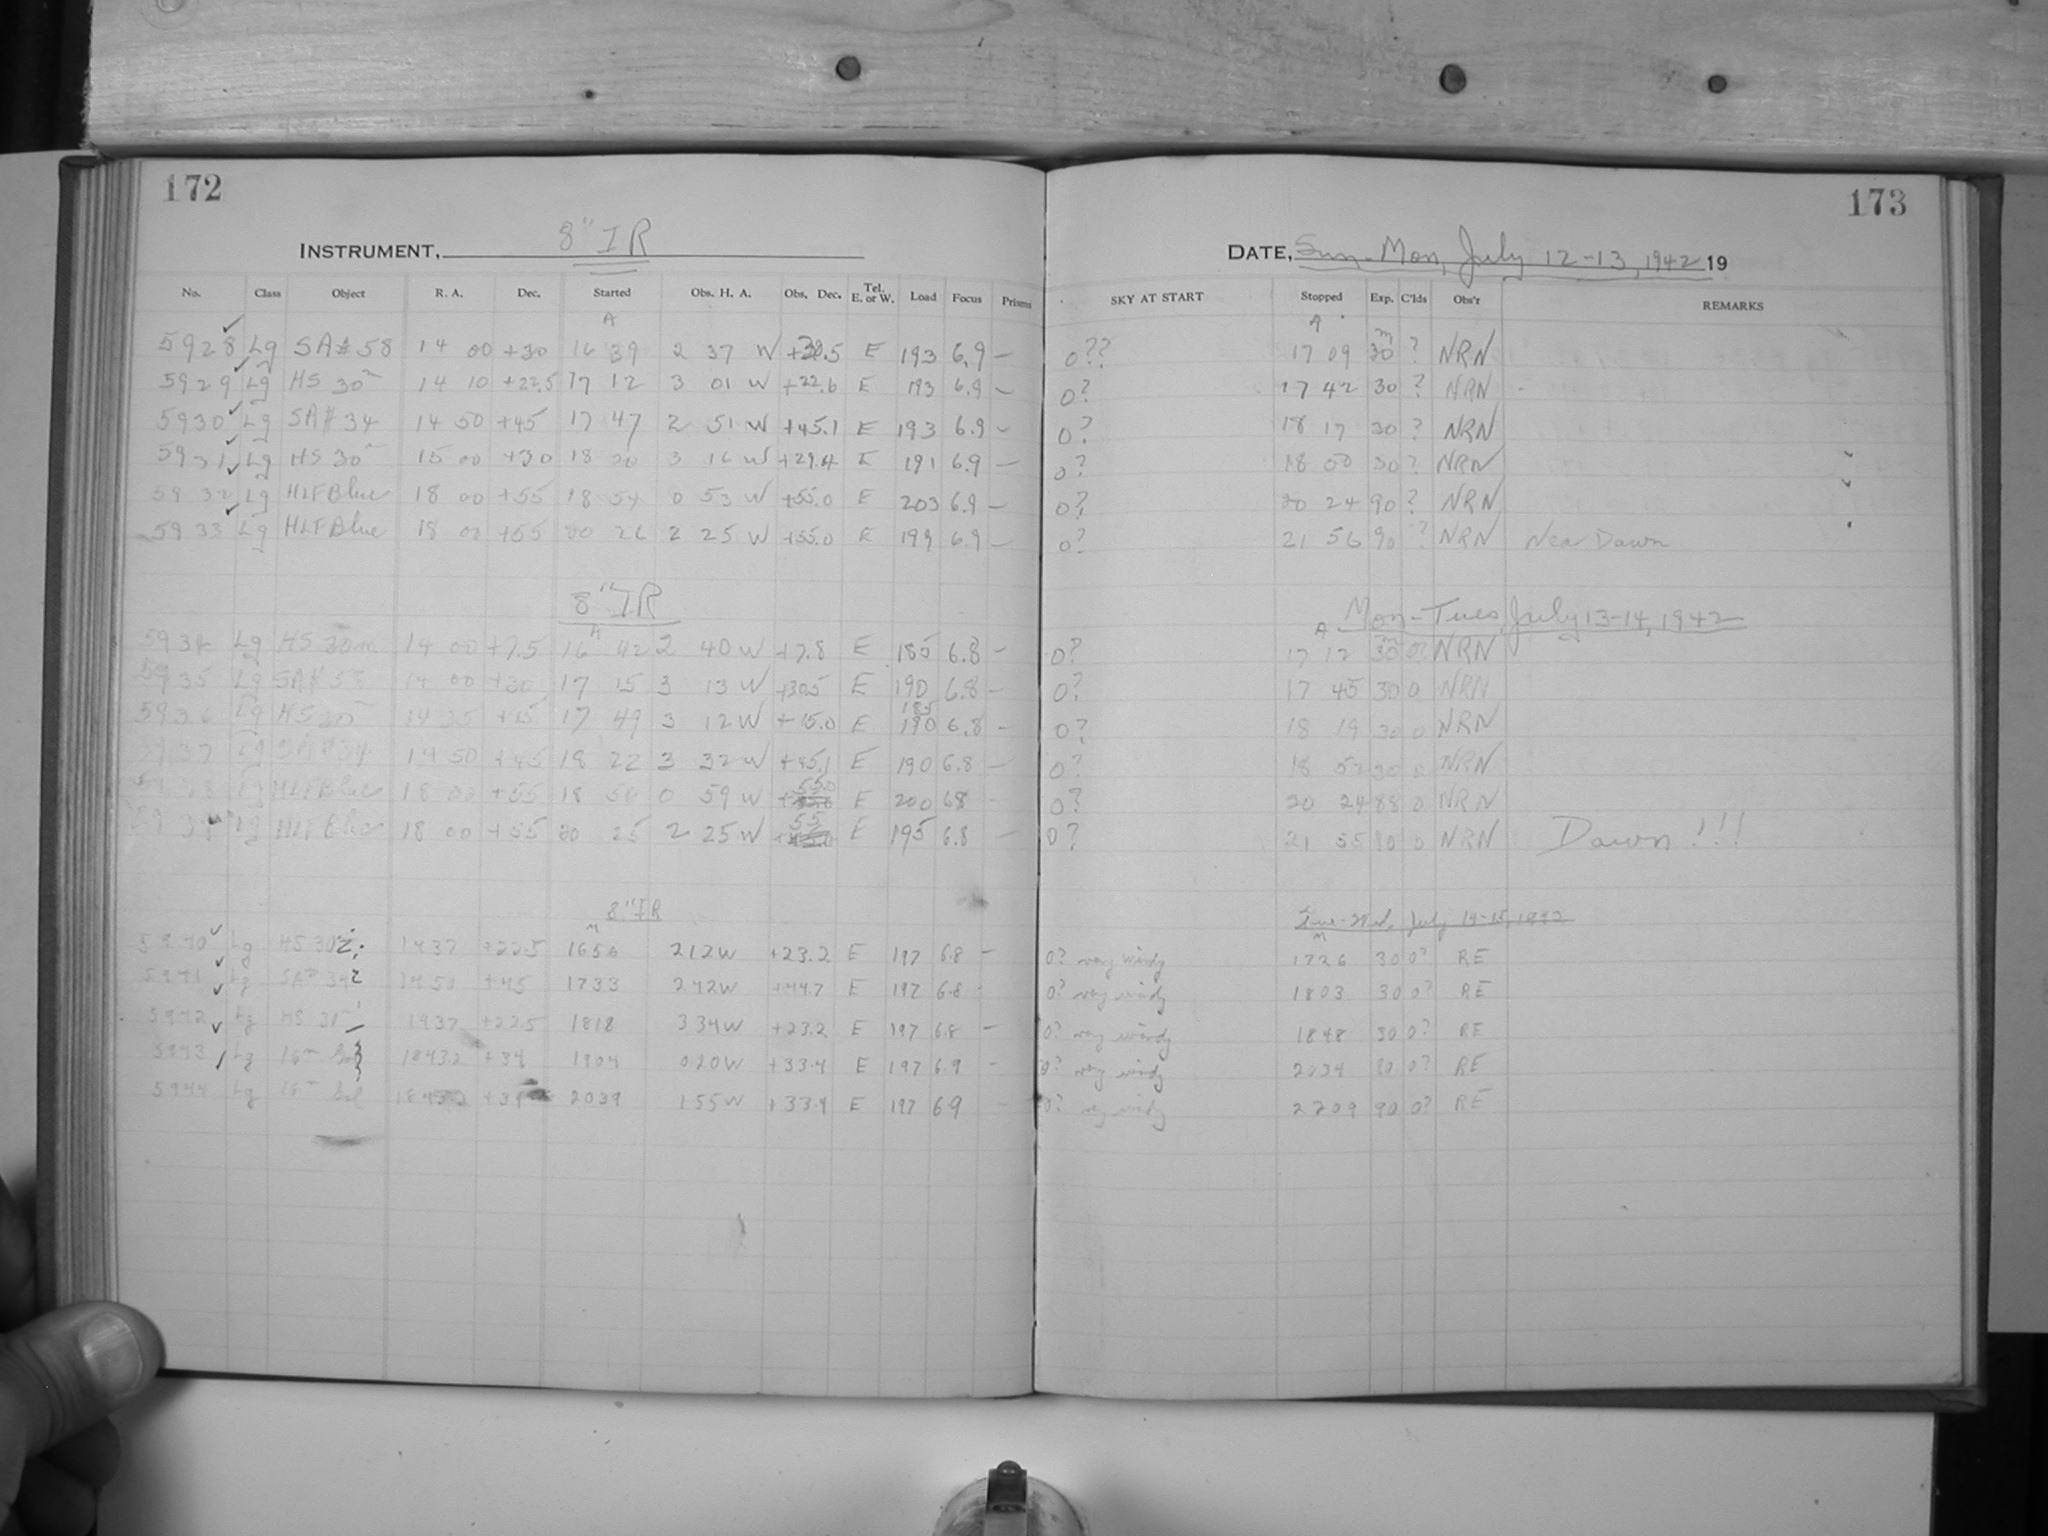 172
173
INSTRUMENT, 8" IR
DATE, Sun-Mon, July 12-13, 1942 19
No. Class Object R. A. Dec. Started Obs. H. A. Obs. Dec. Tel. E. or W. Load Focus Prisms SKY AT START Stopped Exp. C'lds Obs'r REMARKS
A A m
5928 Lg SA# 58 14 00 +30 16 39 2 37 W +30.5 E 193 6.9 — 0?? 17 09 30 ? NRN
5929 Lg HS 30m 14 10 +22.5 17 12 3 01 W +22.6 E 193 6.9 — 0? 17 42 30 ? NRN
5930 Lg SA# 34 14 50 +45 17 47 2 51 W +45.1 E 193 6.9 — 0? 18 17 30 ? NRN
5931 Lg HS 30m 15 00 +30 18 20 3 16 W +29.4 E 191 6.9 — 0? 18 50 30 ? NRN
5932 Lg HLF Blue 18 00 +55 18 54 0 53 W +55.0 E 203 6.9 — 0? 20 24 90 ? NRN
5933 Lg HLF Blue 18 00 +55 20 26 2 25 W +55.0 E 199 6.9 — 0? 21 56 90 ? NRN Nea Dawn
8" IR
Mon-Tues, July 13-14, 1942
A A m
5934 Lg HS 30m 14 00 +7.5 16 42 2 40 W +7.8 E 185 6.8 — 0? 17 12 30 0? NRN
5935 Lg SA# 58 14 00 +30 17 15 3 13 W +30.5 E 190 6.8 — 0? 17 45 30 0 NRN
5936 Lg HS 30m 14 35 +15 17 49 3 12 W +15.0 E 185 190 6.8 — 0? 18 19 30 0 NRN
5937 Lg SA# 34 14 50 +45 18 22 3 32 W +45.1 E 190 6.8 — 0? 18 52 30 0 NRN
5938 Lg HLF Blue 18 00 +55 18 56 0 59 W +55.0 E 200 6.8 — 0? 20 24 88 0 NRN
5939 Lg HLF Blue 18 00 +55 20 25 2 25 W 55 E 195 6.8 — 0? 21 55 90 0 NRN Dawn!!!
8" IR
Tue-Wed, July 14-15, 1942
M M
5940 Lg HS 30m 1437 +22.5 1656 212W +23.2 E 197 6.8 — 0? very windy 1726 30 0? RE
5941 Lg SA# 34 1450 +45 1733 242W +44.7 E 197 6.8 0? very windy 1803 30 0? RE
5942 Lg HS 30m 1437 +22.5 1818 334W +23.2 E 197 6.8 — 0? very windy 1848 30 0? RE
5943 Lg 16m 1843.2 +34 1904 020W +33.4 E 197 6.9 — 0? very windy 2034 90 0? RE
5944 Lg 16m 1843.2 +34 2039 155W +33.4 E 197 6.9 — 0? very windy 2209 90 0? RE